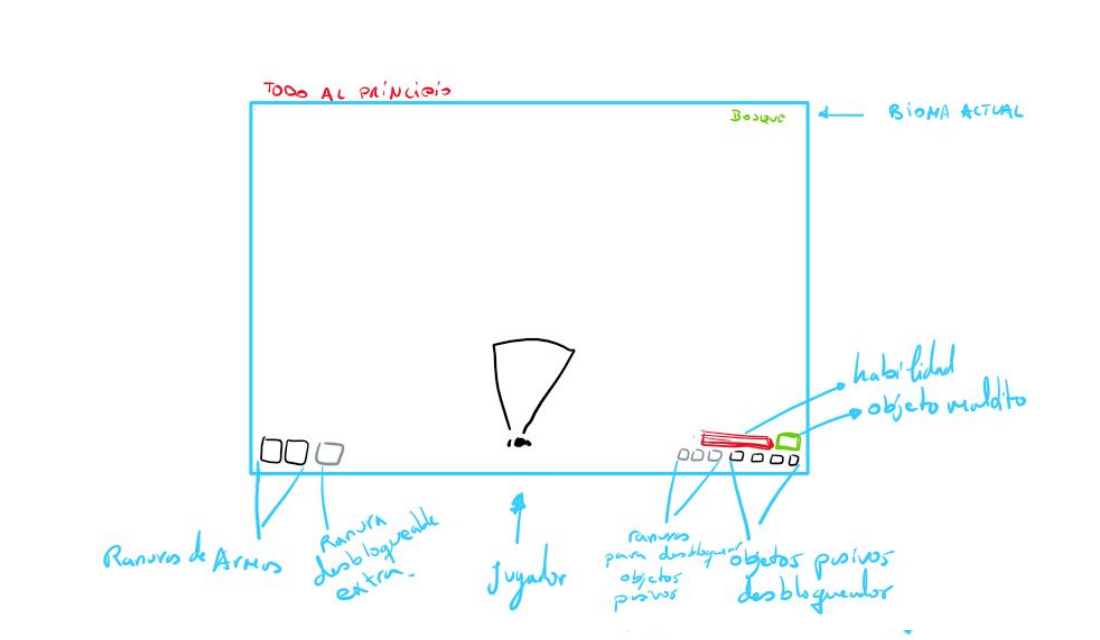 TODO AL PRÍNCIPÍO
BOSQUE
BÍOMA ACTUAL
habilidad
objeto maldito
Ranuras de Armas
Ranura
desbloqueable
extra.
Jugador
ranuras
para desbloquear
objetos
pasivos
objetos pasivos
desbloqueados